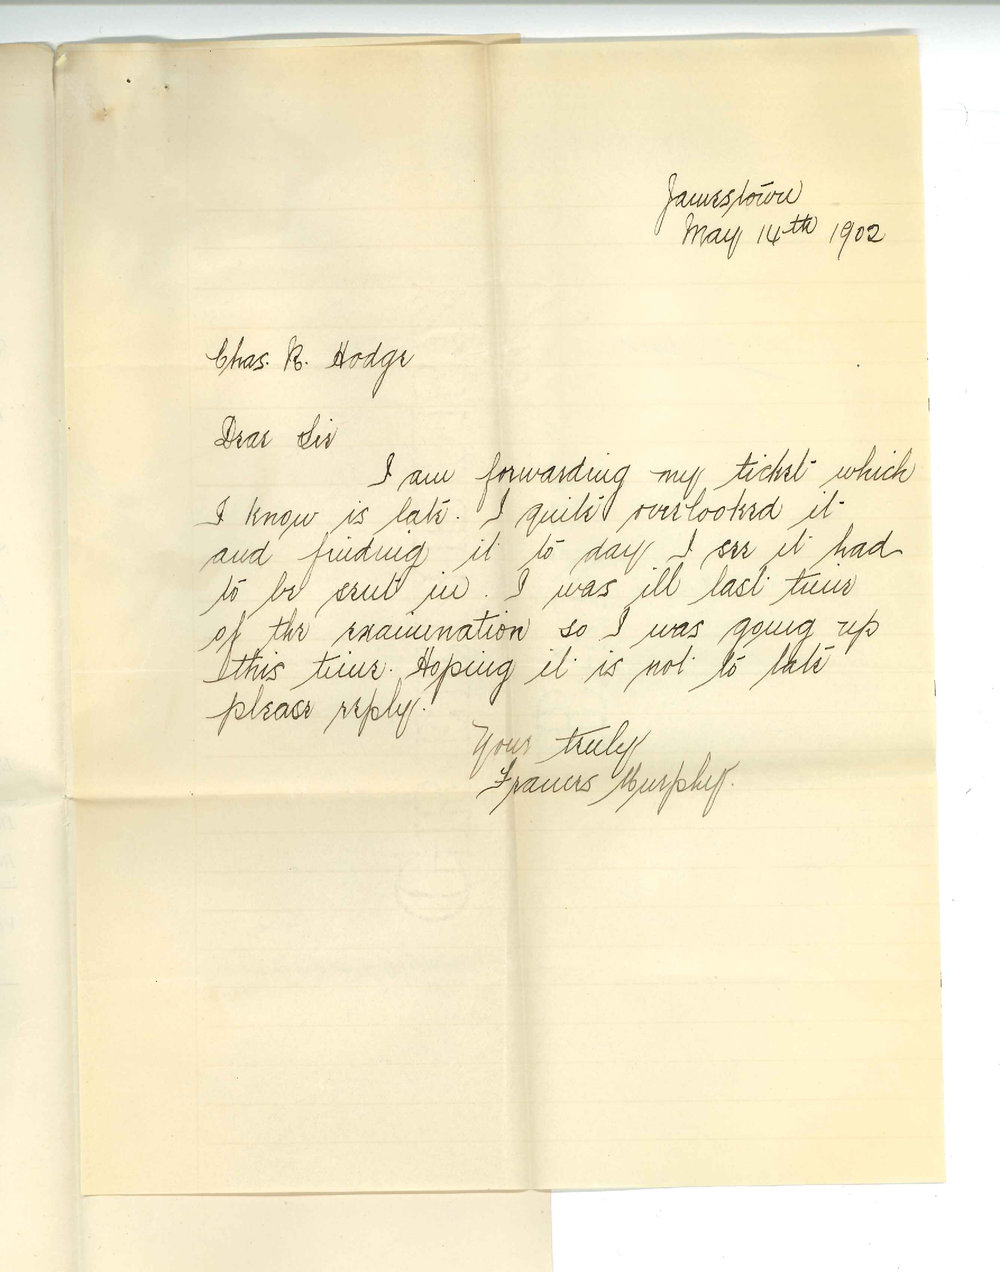 Jamestown
May 14th 1902
Chas. R. Hodge
Dear Sir
I am forwarding my ticket which
I know is late. I quite overlooked it
and finding it to day I see it had
to be sent in. I was ill last time
of the examination so I was going up
this time. Hoping it is not to late
please reply.
Your truly
Frances Murphy.